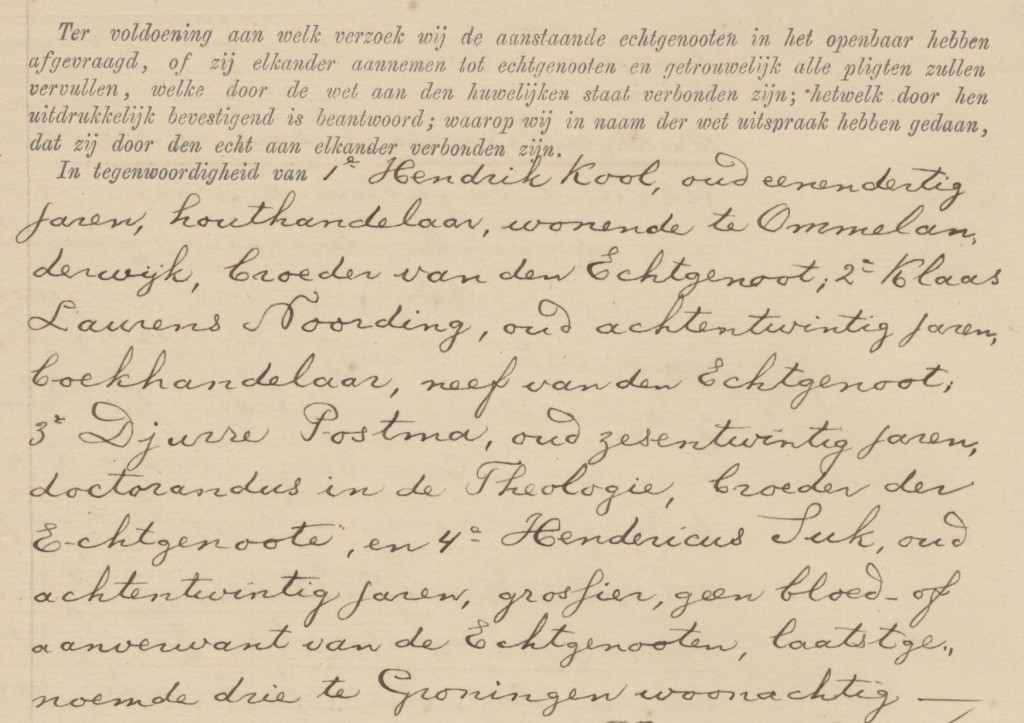 Ter voldoening aan welk verzoek wij de aanstaande echtgenooten in het openbaar hebben
afgevraagd, of zij elkander aannemen tot echtgenooten en getrouwelijk alle pligten zullen
vervullen, welke door de wet aan den huwelijken staat verbonden zijn; hetwelk door hen
uitdrukkelijk bevestigend is beantwoord; waarop wij in naam der wet uitspraak hebben gedaan,
dat zij door den echt aan elkander verbonden zijn.
In tegenwoordigheid van 1e Hendrik Kool, oud eenendertig
jaren, houthandelaar, wonende te Ommelan„
derwijk, broeder van den Echtgenoot; 2e Klaas
Laurens Noording, oud achtentwintig jaren,
boekhandelaar, neef van den Echtgenoot;
3e Djurre Postma, oud zesentwintig jaren,
doctorandus in de Theologie, broeder der
Echtgenoote, en 4e Hendericus Suk, oud
achtentwintig jaren, grossier, geen bloed- of
aanverwant van de Echtgenooten, laatstge„
noemde drie te Groningen woonachtig —